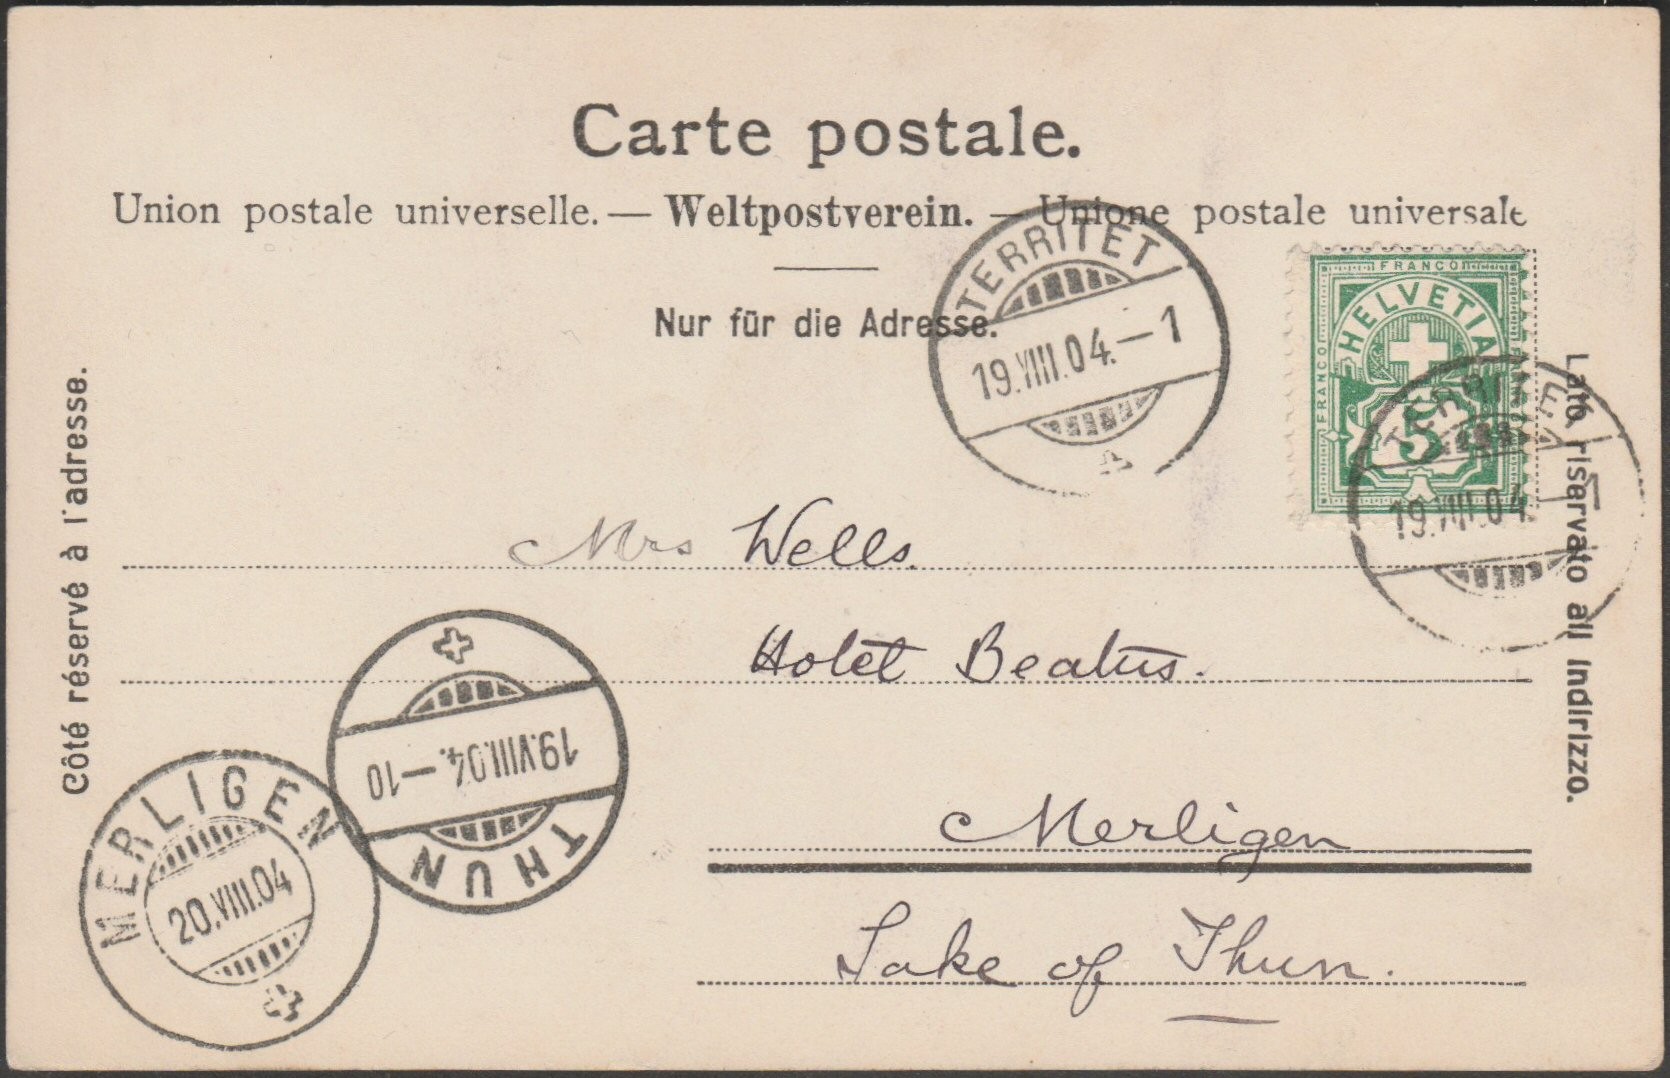 Carte postale.
Union postale universelle. — Weltpostverein. — Unione postale universale
Nur für die Adresse.
Côté réservé à l'adresse.
Lato riservato all indirizzo.
TERRITET
19.VIII.04.—1
FRANCO
FRANCO
HELVETIA
5
TERRITET
19.VIII.04.—1
Mrs Wells.
Hotel Beatus.
Merligen
Lake of Thun.
THUN
19.VIII.04.—10
MERLIGEN
20.VIII.04